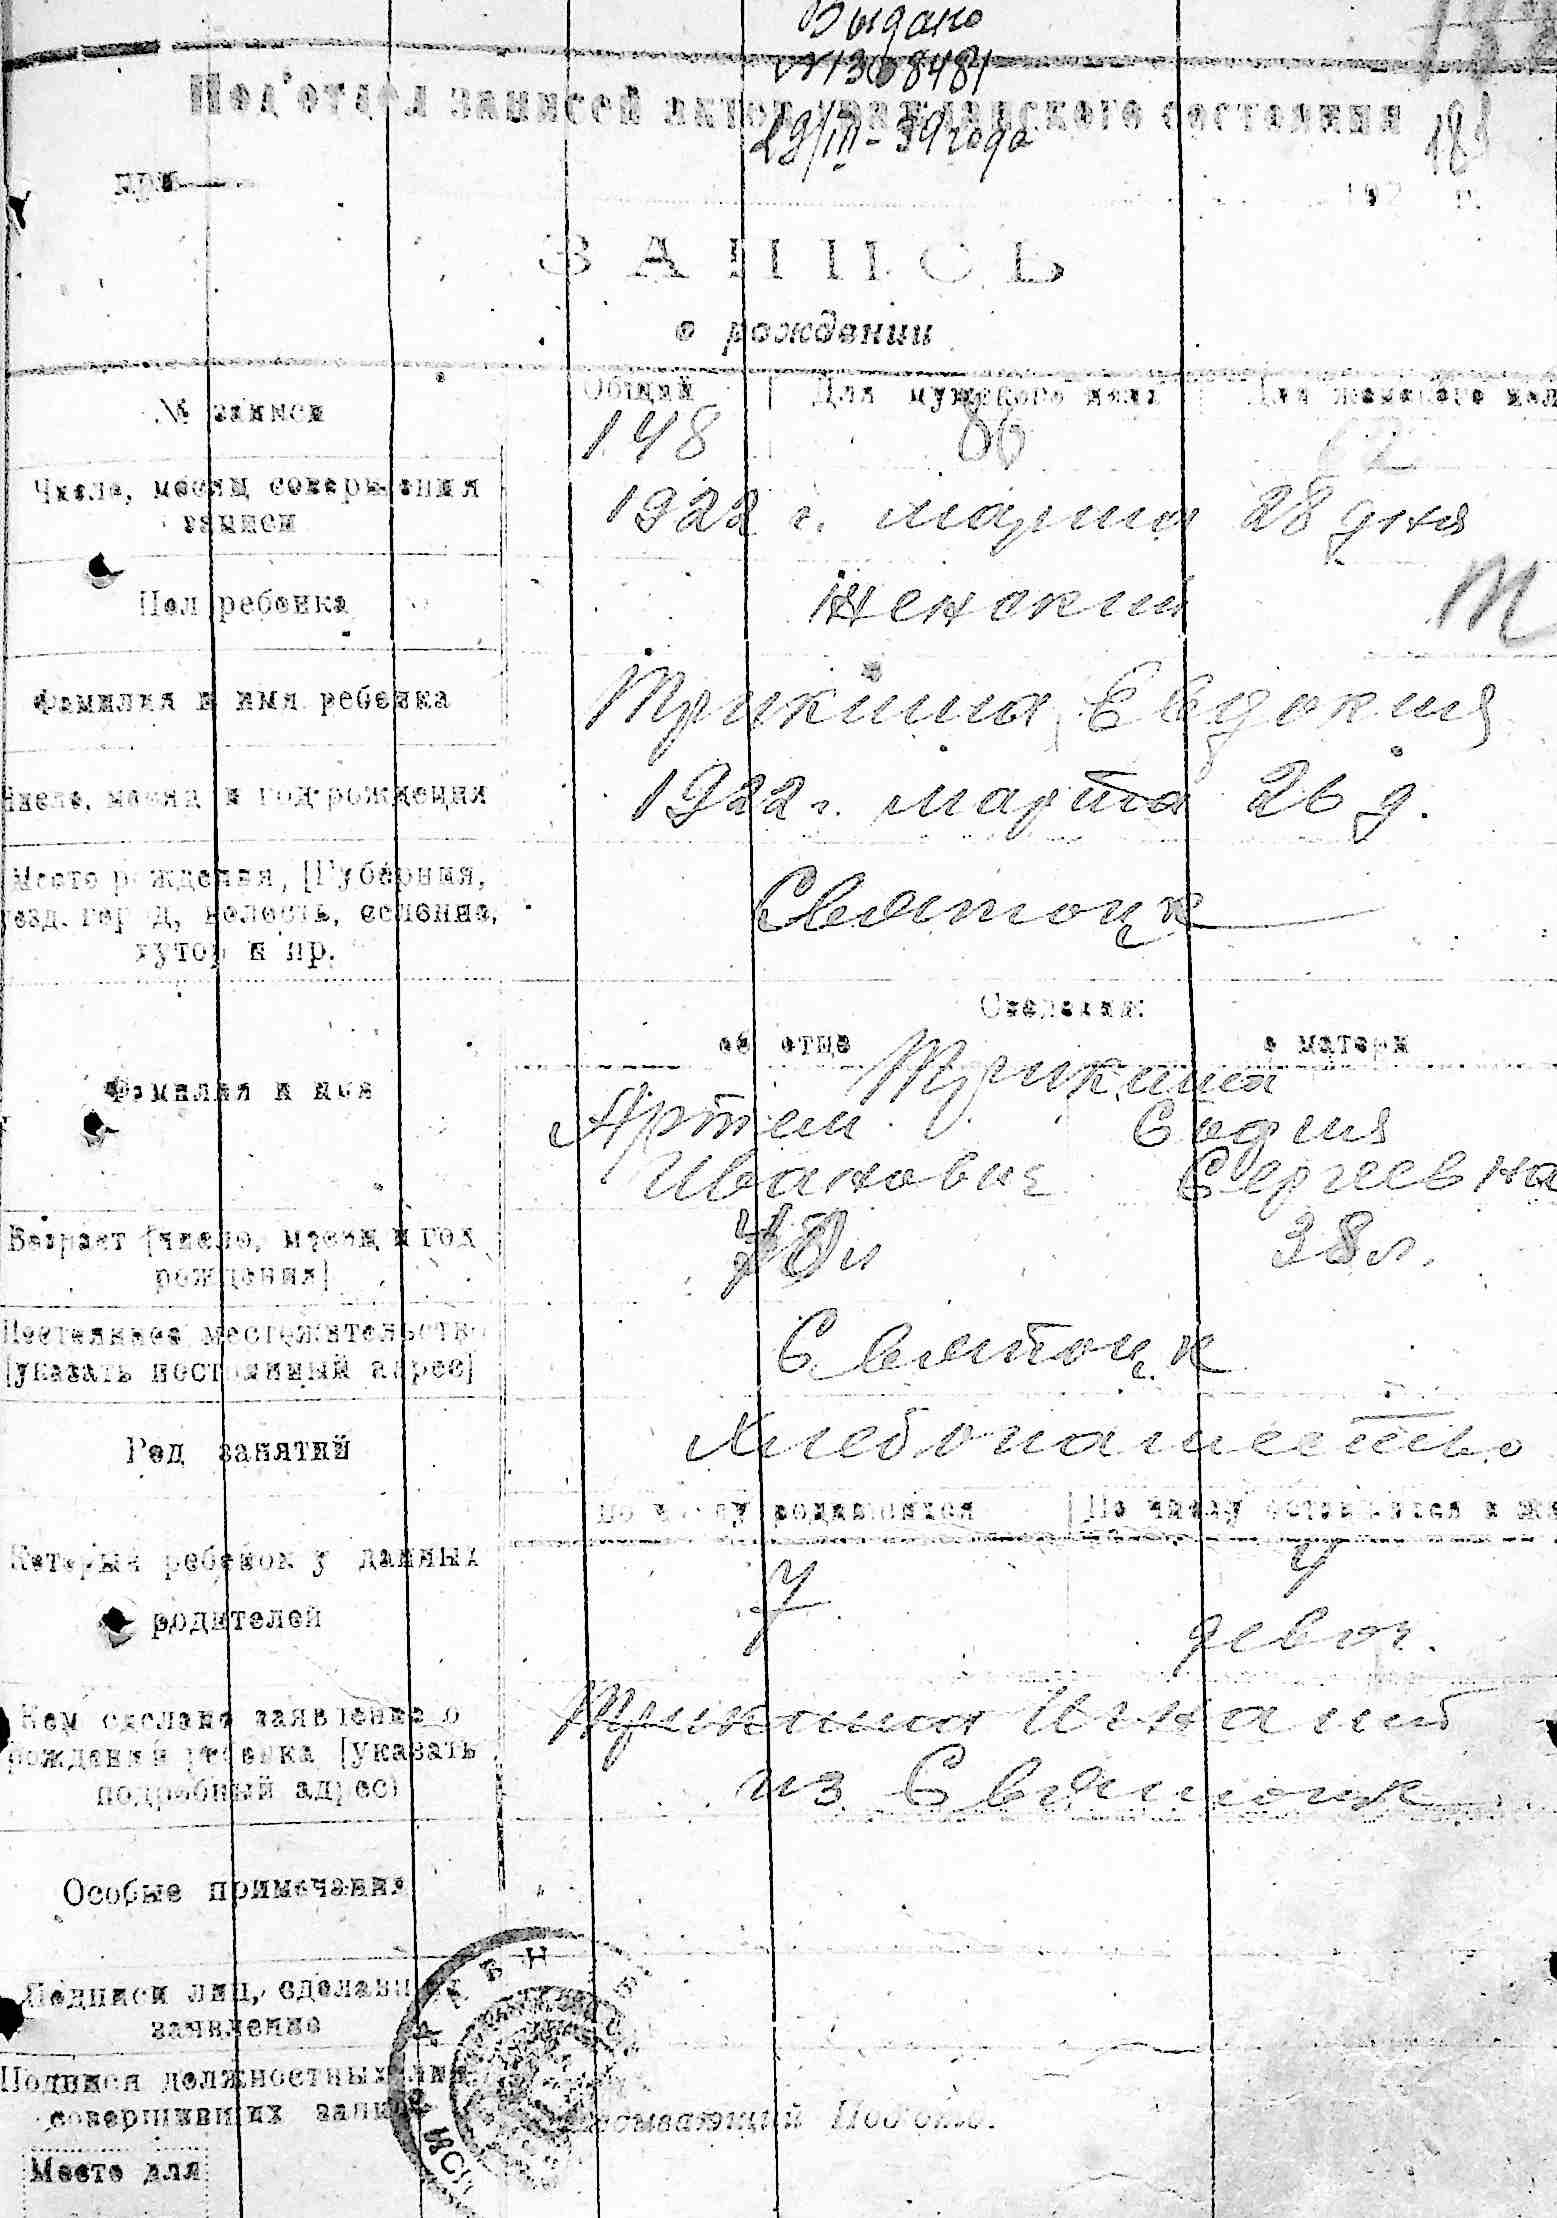 Выдано
№ 1308481
Под'отдел записей актов гражданского состояния
29/III-39 года
при
192 г.
ЗАПИСЬ
о рождении
№ записи
Общий | Для мужского пола | Для женского пол
148 86 62
Число, месяц совершения записи
1922 г. марта 28 дня
Пол ребенка
женский
Фамилия и имя ребенка
Евдокия
Число, месяц и год рождения
1922 г. марта 26 д.
Место рождения, [Губерния,
уезд, город, волость, селение,
хутор и пр.
Святоцк
Сведения:
об отце о матери
Фамилия и имя
Артем София
Иванович Сергеевна
Возраст [число, месяц и год
рождения]
38 л.
Постоянное местожительство
[указать постоянный адрес]
Святоцк
Род занятий
Хлебопашество
По числу родившихся | По числу оставшихся в жи
Который ребенок у данных
родителей
7 4
девоч.
Кем сделано заявление о
рождении ребенка [указать
подробный адрес)
Игнатий
из Святоцк
Особые примечания
Подписи лиц, сделавших
заявление
Подписи должностных лиц
совершивших запись
Под'отд.
Место для